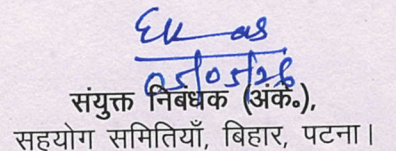 05/05/26
संयुक्त निबंधक (अंके०),
सहयोग समितियाँ, बिहार, पटना।